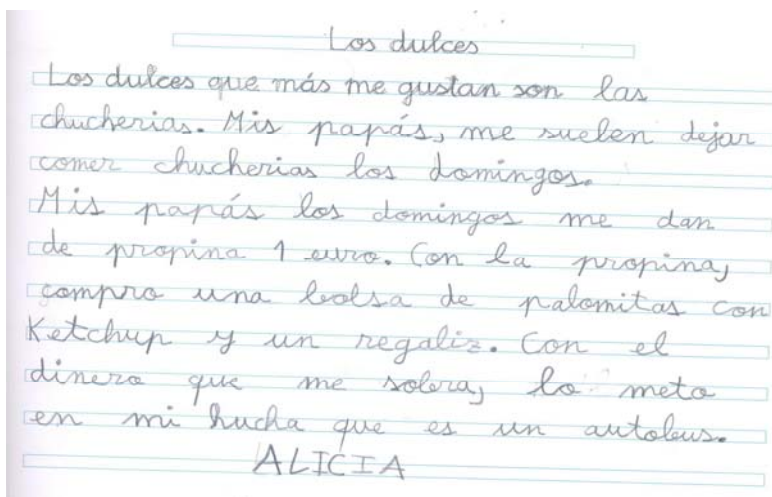 Los dulces
Los dulces que más me gustan son las
chucherias. Mis papás, me suelen dejar
comer chucherias los domingos.
Mis papás los domingos me dan
de propina 1 euro. Con la propina,
compro una bolsa de palomitas con
Ketchup y un regaliz. Con el
dinero que me sobra, lo meto
en mi hucha que es un autobus.
ALICIA